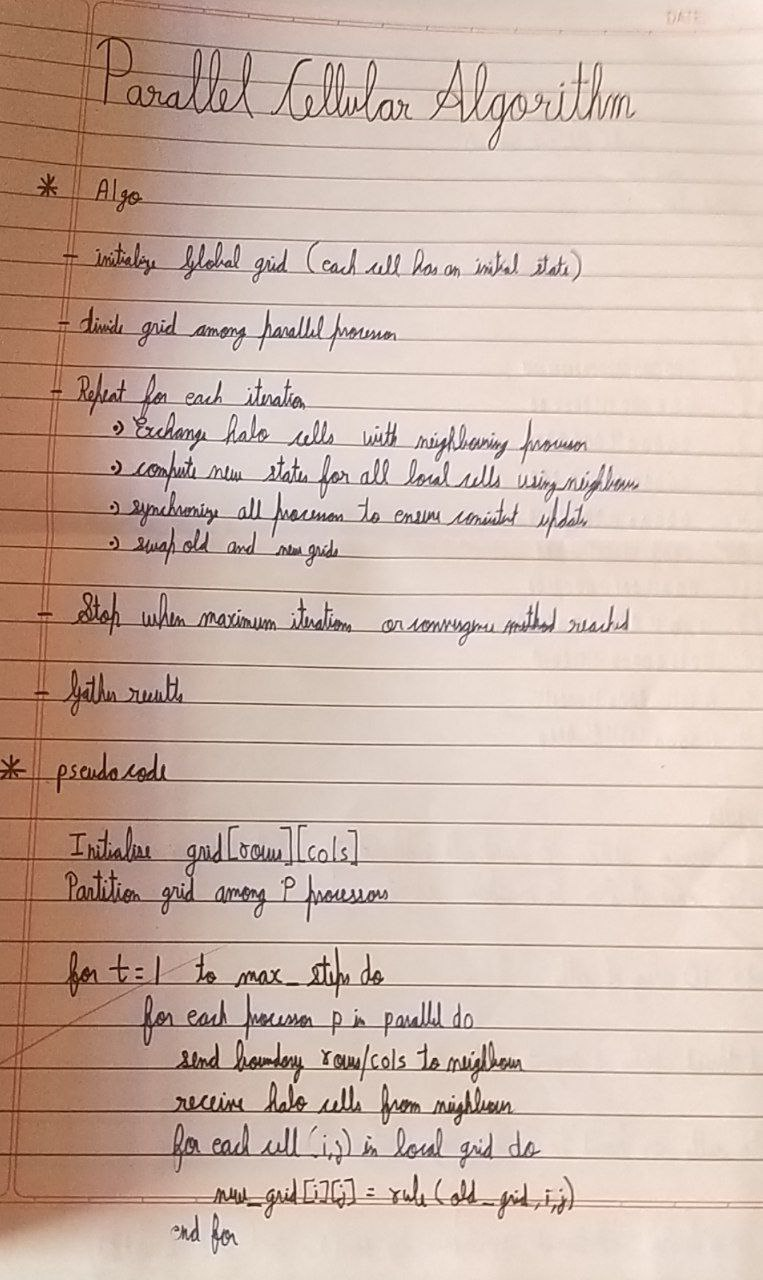 Parallel Cellular Algorithm
* Algo
- initialize Global grid (each cell has an initial state)
- divide grid among parallel processor
- Repeat for each iteration
→ Exchange halo cells with neighbouring processor
→ compute new states for all local cells using neighbours
→ synchronize all processor to ensure consistent update
→ swap old and new grids
- Stop when maximum iterations or convergence method reached
- Gather results
* pseudo code
Initialise grid[rows][cols]
Partition grid among P processors
for t=1 to max_steps do
for each processor p in parallel do
send boundary rows/cols to neighbour
receive halo cells from neighbour
for each cell (i,j) in local grid do
new_grid[i][j] = rule(old_grid,i,j)
end for